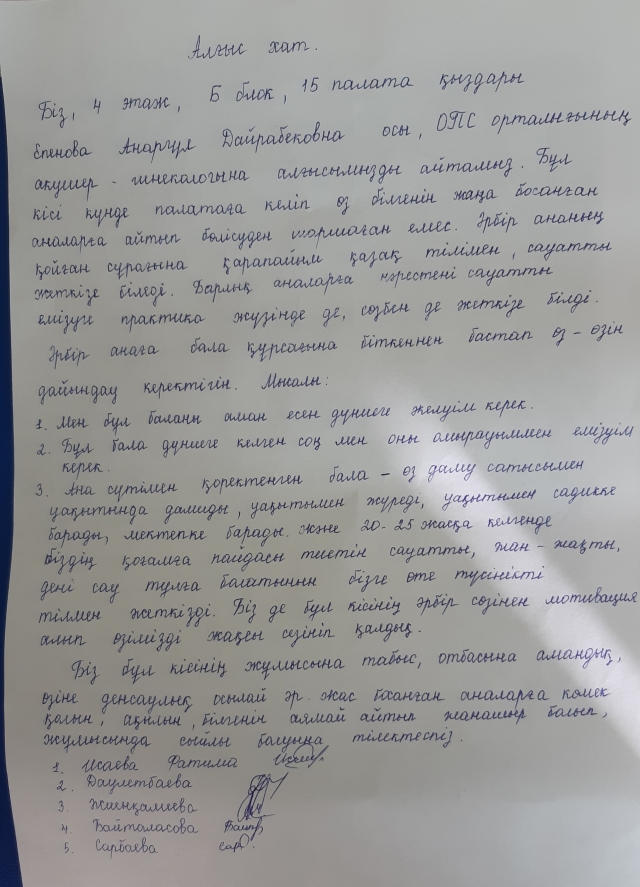 Алғыс хат.
Біз, 4 этаж, Б блок, 15 палата қыздары
Епенова Анаргүл Дайрабековна осы, ОПС орталығының
акушер - гинекологына алғысымызды айтамыз. Бұл
кісі күнде палатаға келіп өз білгенін жаңа босанған
аналарға айтып бөлісуден шаршаған емес. Әрбір ананың
қойған сұрағына қарапайым қазақ тілімен, сауатты
жеткізе біледі. Барлық аналарға нәрестені сауатты
емізуге практика жүзінде де, сөзбен де жеткізе білді.
Әрбір анаға бала құрсағына біткеннен бастап өз - өзін
дайындау керектігін. Мысалы:
1. Мен бұл баланы аман есен дүниеге желуім керек.
2. Бұл бала дүниеге келген соң мен оны омырауыммен емізуім
керек.
3. Ана сүтімен қоректенген бала - өз даму сатысымен
уақытында дамиды, уақытымен жүреді, уақытымен садикке
барады, мектепке барады. және 20-25 жасқа келгенде
біздің қоғамға пайдасы тиетін сауатты, жан - жақты,
дені сау тұлға болатынын бізге өте түсінікті
тілмен жеткізді. Біз де бұл кісінің әрбір сөзінен мотивация
алып өзімізді жақсы сезініп қалдық.
Біз бұл кісінің жұмысына табыс, отбасына амандық,
өзіне денсаулық осылай әр. жас босанған аналарға көмек
қолын, ақылын, білгенін аямай айтып жанашыр болып,
жұмысында сыйлы болуына тілектеспіз.
1. Исаева Фатима
2. Даулетбаева
3. Жиенқалиева
4. Байтоласова
5. Сарбаева сарб.